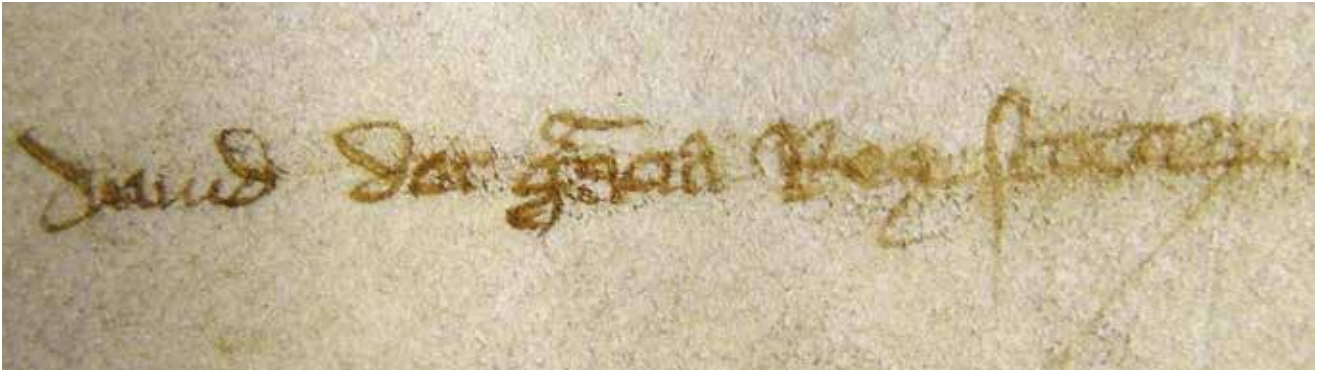 dauid dei gracia Rex scottor